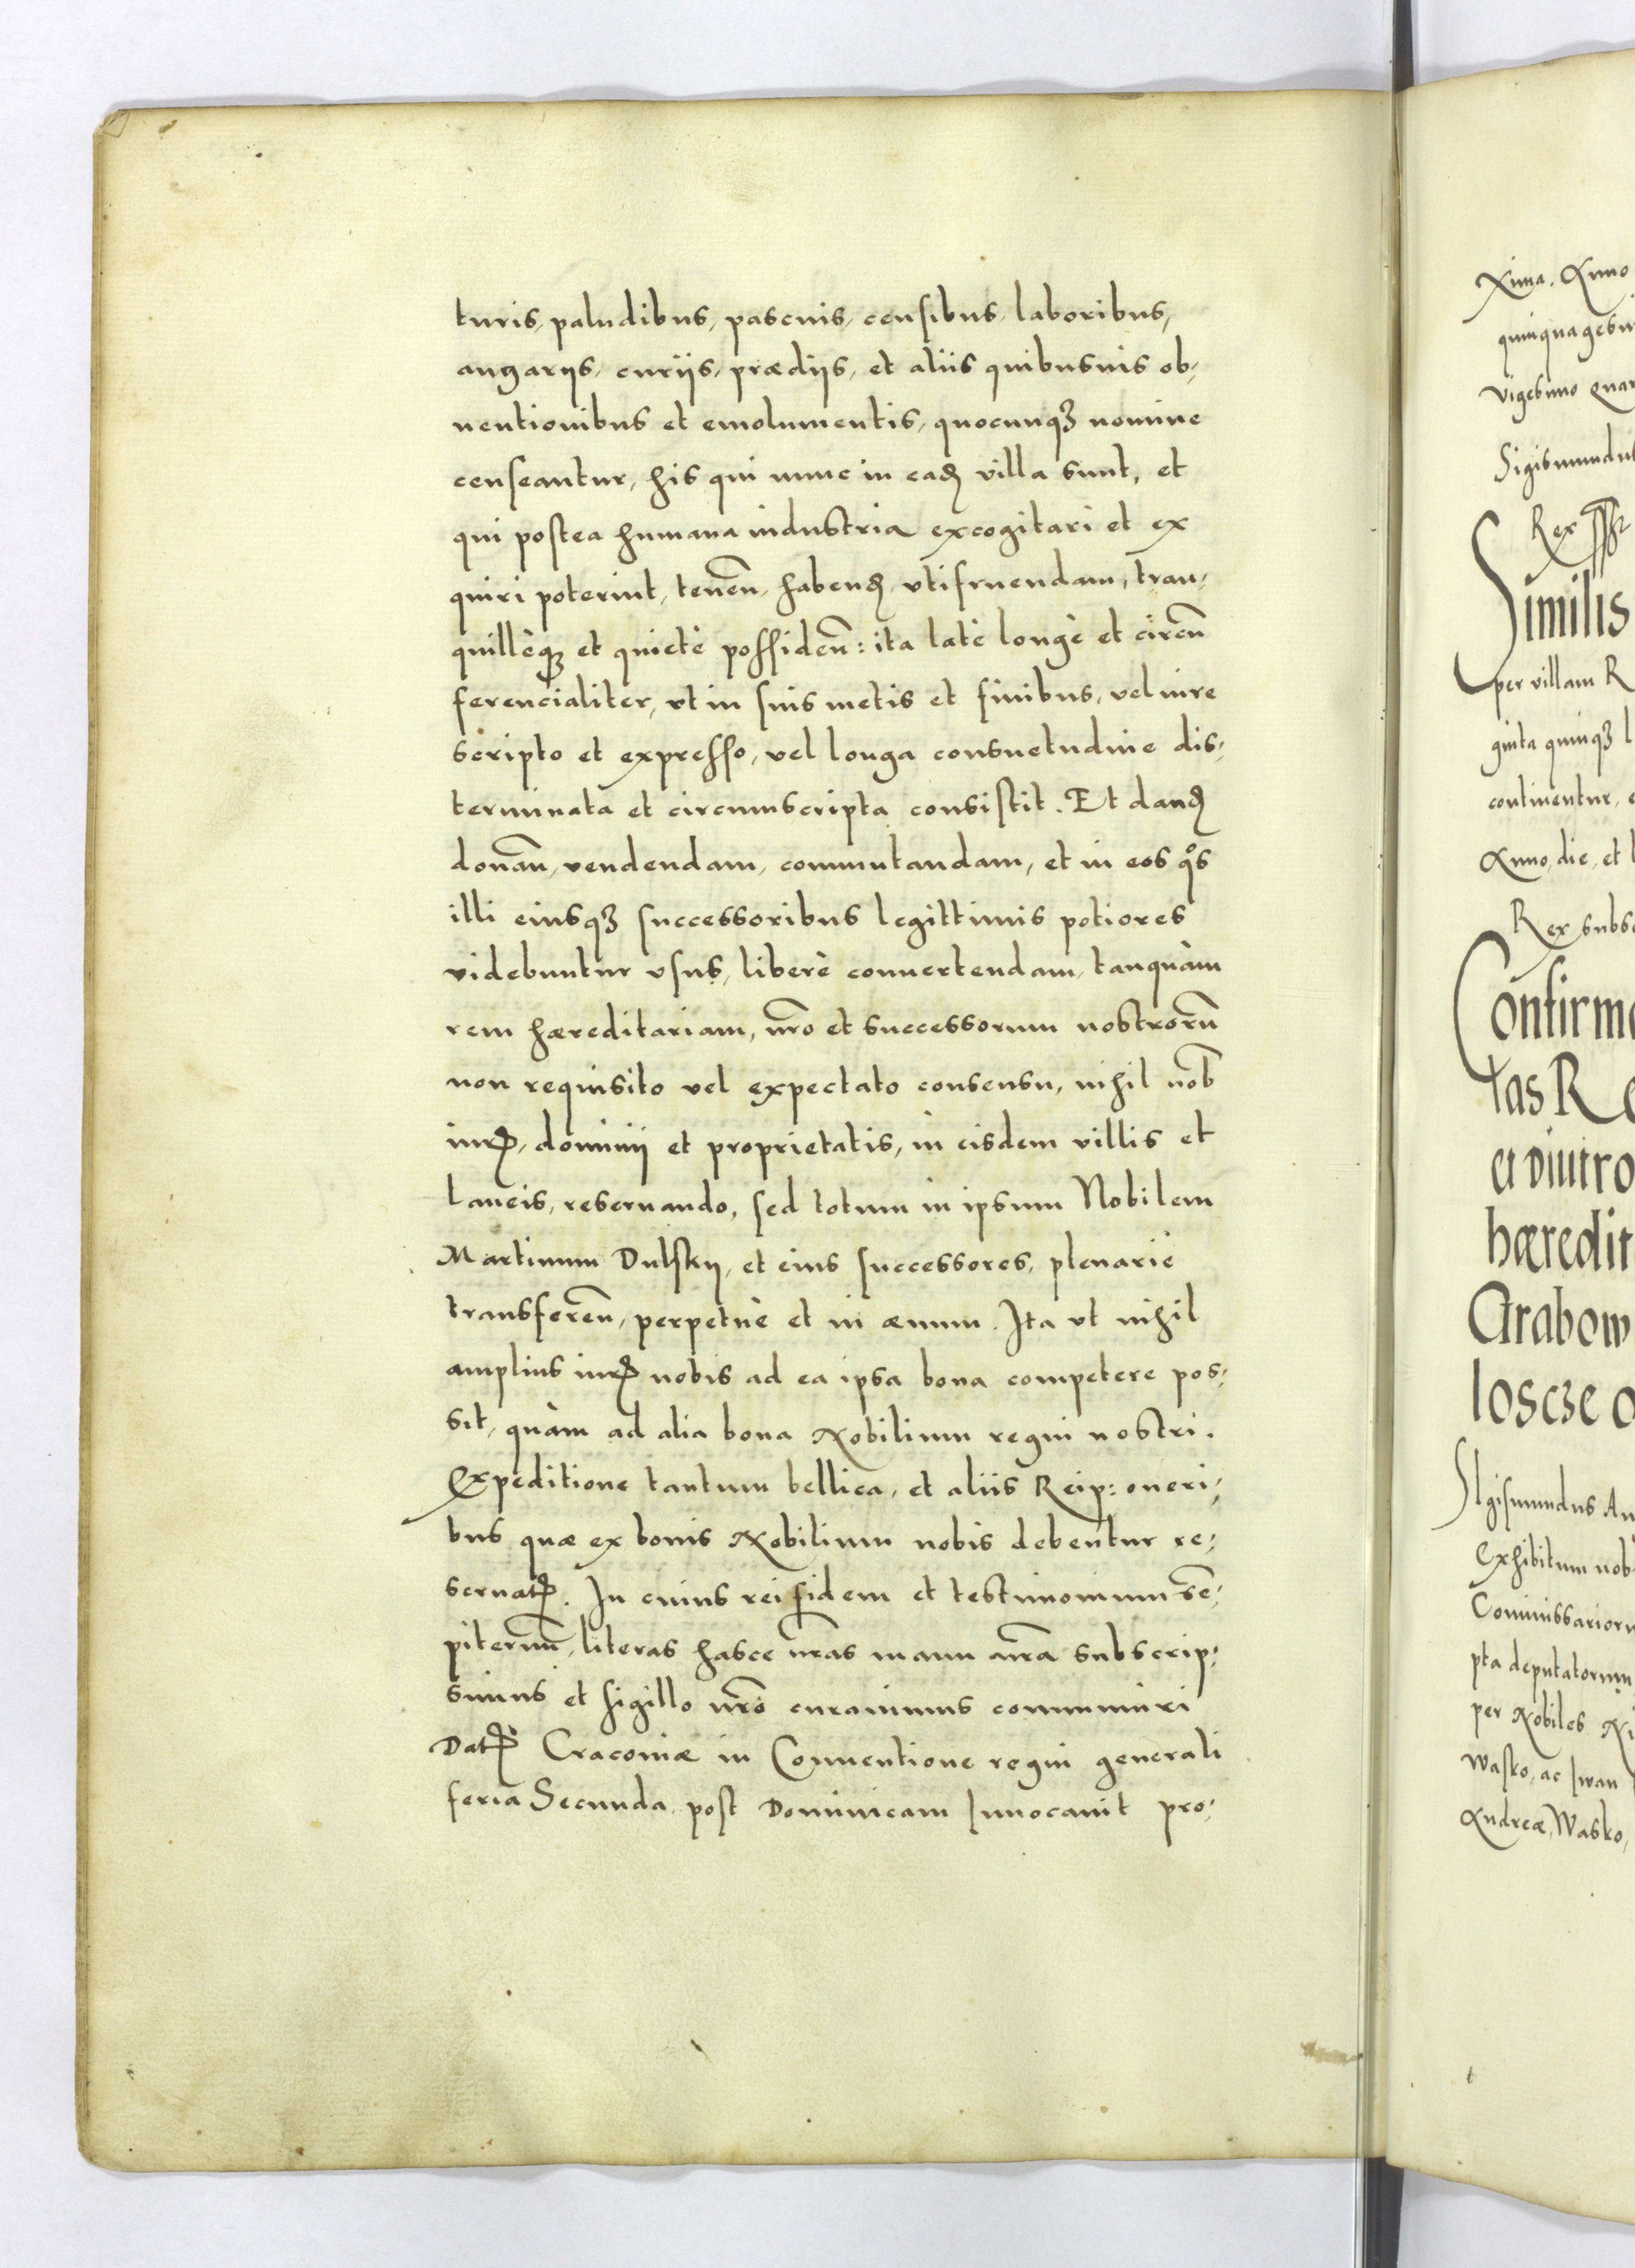 turis, paludibus, pascuis, censibus, laboribus,
angarijs, curijs, prædijs, et alijs quibusuis ob,
uentionibus et emolumentis, quocunqꝫ nomine
censeantur, his qui nunc in eadꝫ villa sunt, et
qui postea humana industria excogitari et ex
quiri poterint, teneñ, habendꝫ, vtifruendam, tran,
quillèqꝫ et quietè possideñ: ita latè longè et circũ
ferencialiter, vt in suis metis et finibus, vel iure
scripto et expresso, vel longa consuetudine dis,
terminata et circumscripta consistit. Et dandꝫ
donañ, vendendam, commutandam, et in eos qos
illi eiusqꝫ successoribus legittimis potiores
videbuntur vsus, liberè conuertendam, tanquàm
rem hæreditariam, nr̃o et successorum nostrorũ
non requisito vel expectato consensu, nihil nob̃
iurꝭ, dominij et proprietatis, in eisdem villis et
laneis, reseruando, sed totum in ipsum Nobilem
Martinum Dulsky, et eius successores, plenariè
transfereñ, perpetuè et in æuum. Ita vt nihil
amplius iurꝭ nobis ad ea ipsa bona competere pos,
sit, quàm ad alia bona Nobilium regni nostri.
Expeditione tantum bellica, et aliis Reip: oneri,
bus quæ ex bonis Nobilium nobis debentur re,
seruatꝭ. In cuius rei fidem et testimonium sẽ,
piternũ, literas hasce nr̃as manu nr̃a subscrip,
simus et sigillo nr̃o curauimus communiri
Datꝭ Cracouiæ in Conuentione regni generali
feria Secunda post Dominicam Inuocauit pro,
xima. Anno
quinquagesi
vigesimo quar
Sigismundus
Rex sspt
Similis
per villam R
ginta quinqꝫ l
continentur,
Anno, die, et l
Rex subs
Confirma
tas R
et Diutro
hæredit
Grabow
loscze o
SIgismundus Au
Exhibitum nob
Commissarioru
pta deputatorum
per Nobiles Ni
Wasko, ac Iwan
Andreæ, Wasko,